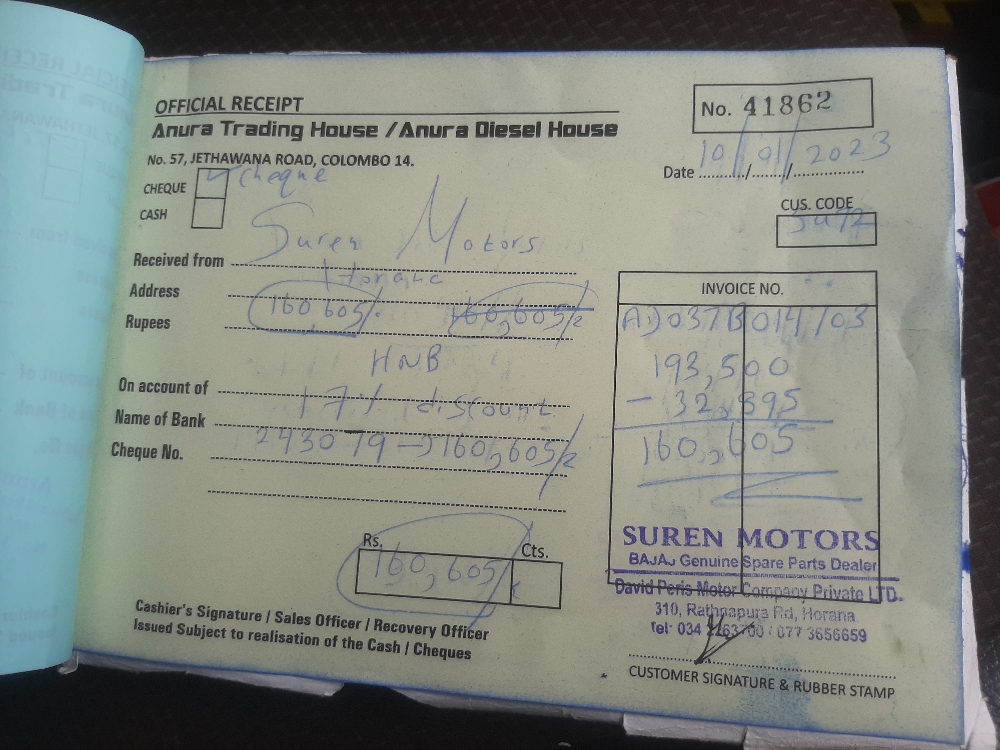 OFFICIAL RECEIPT
Anura Trading House / Anura Diesel House
No. 57, JETHAWANA ROAD, COLOMBO 14.
No. 41862
Date 10/01/2023
CHEQUE cheque
CASH
CUS. CODE
Received from Suren Motors
Address Horana
Rupees 160,605/. 160,605/=
HNB
On account of
Name of Bank 17% discount
Cheque No. 243079 → 160,605/=
INVOICE NO.
A1)037B014/03
193,500
- 32,895
160,605
Rs. Cts.
160,605/
Cashier's Signature / Sales Officer / Recovery Officer
Issued Subject to realisation of the Cash / Cheques
SUREN MOTORS
BAJAJ Genuine Spare Parts Dealer
David Peris Motor Company Private LTD.
310, Rathnapura Rd, Horana
Tel: 034 2263700 / 077 3656659
CUSTOMER SIGNATURE & RUBBER STAMP